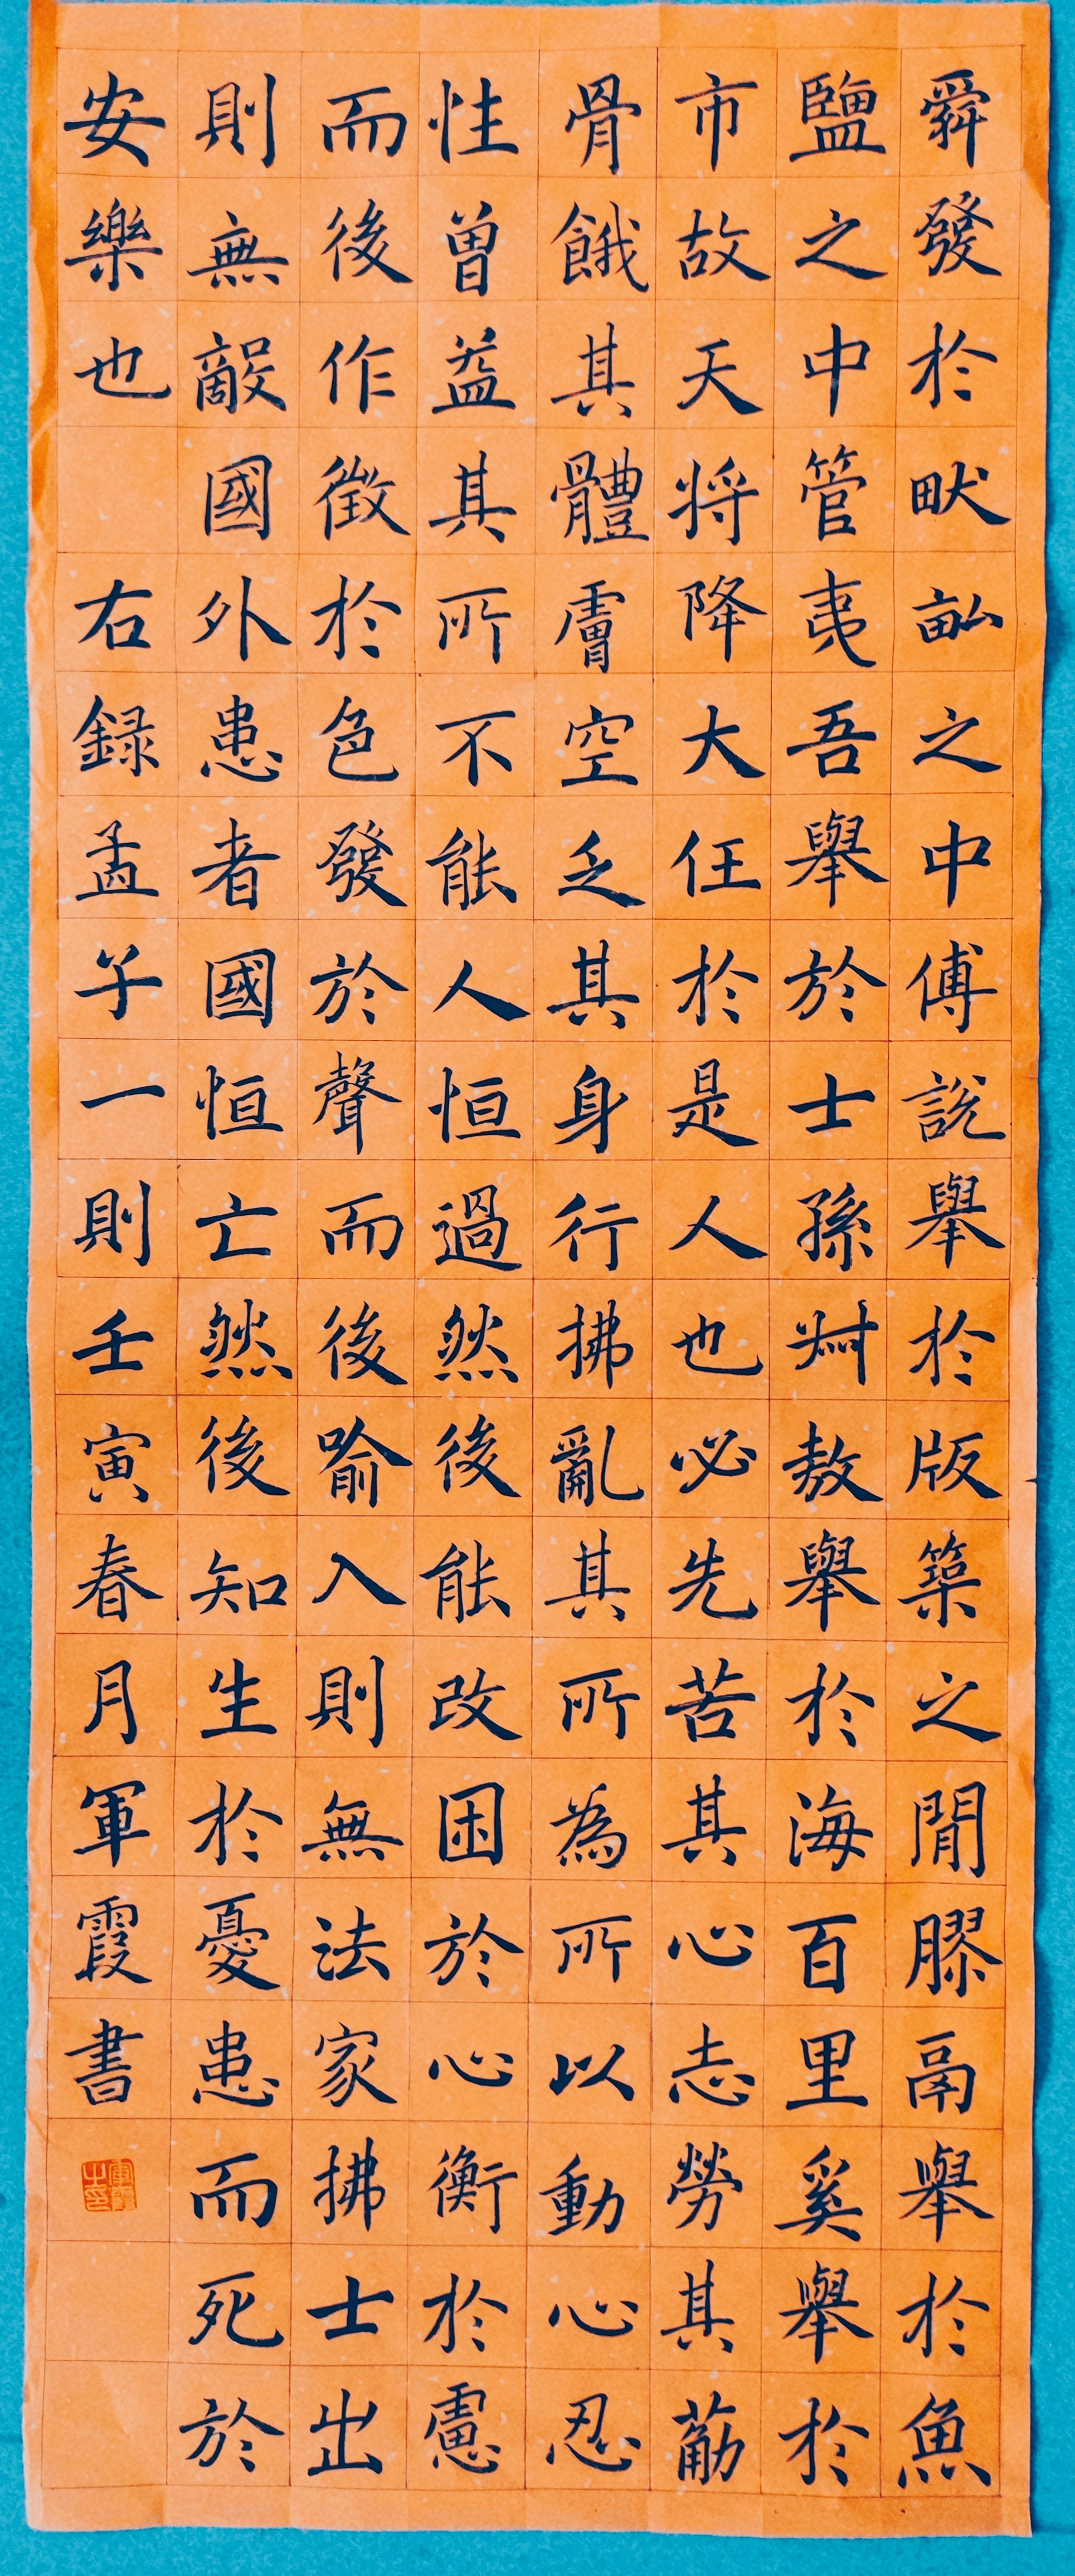 舜發於畎畝之中傅說舉於版築之間膠鬲舉於魚
鹽之中管夷吾舉於士孫叔敖舉於海百里奚舉於
市故天将降大任於是人也必先苦其心志勞其筋
骨餓其體膚空乏其身行拂亂其所為所以動心忍
性曾益其所不能人恒過然後能改困於心衡於慮
而後作徵於色發於聲而後喻入則無法家拂士出
則無敵國外患者國恒亡然後知生於憂患而死於
安樂也 右録孟子一則壬寅春月軍霞書
軍霞之印